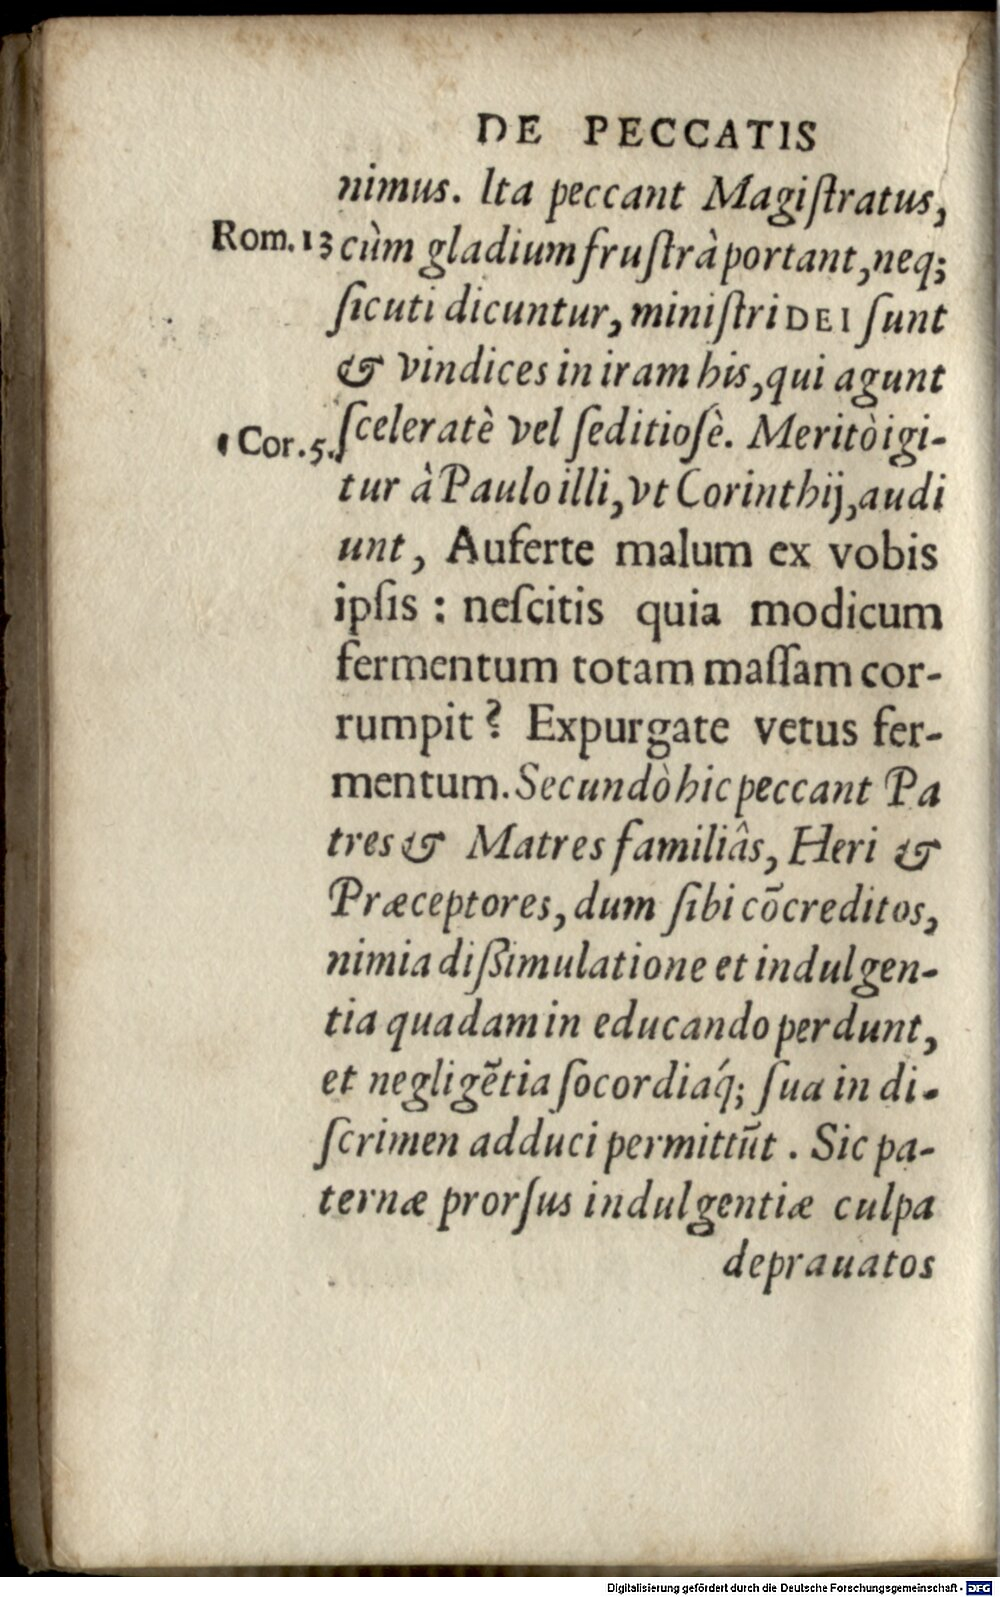 DE PECCATIS
nimus. Ita peccant Magiſtratus,
Rom. 13 cùm gladium fruſtrà portant, neq;
ſicuti dicuntur, miniſtri DEI ſunt
& vindices in iram his, qui agunt
1 Cor. 5. ſceleratè vel ſeditioſè. Meritò igi-
tur à Paulo illi, vt Corinthij, audi
unt, Auferte malum ex vobis
ipſis : neſcitis quia modicum
fermentum totam maſſam cor-
rumpit? Expurgate vetus fer-
mentum. Secundò hic peccant Pa
tres & Matres familiâs, Heri &
Præceptores, dum ſibi cōcreditos,
nimia dißimulatione et indulgen-
tia quadam in educando perdunt,
et negligētia ſocordiaq́; ſua in di-
ſcrimen adduci permittūt. Sic pa-
ternæ prorſus indulgentiæ culpa
deprauatos
Digitalisierung gefördert durch die Deutsche Forschungsgemeinschaft - DFG